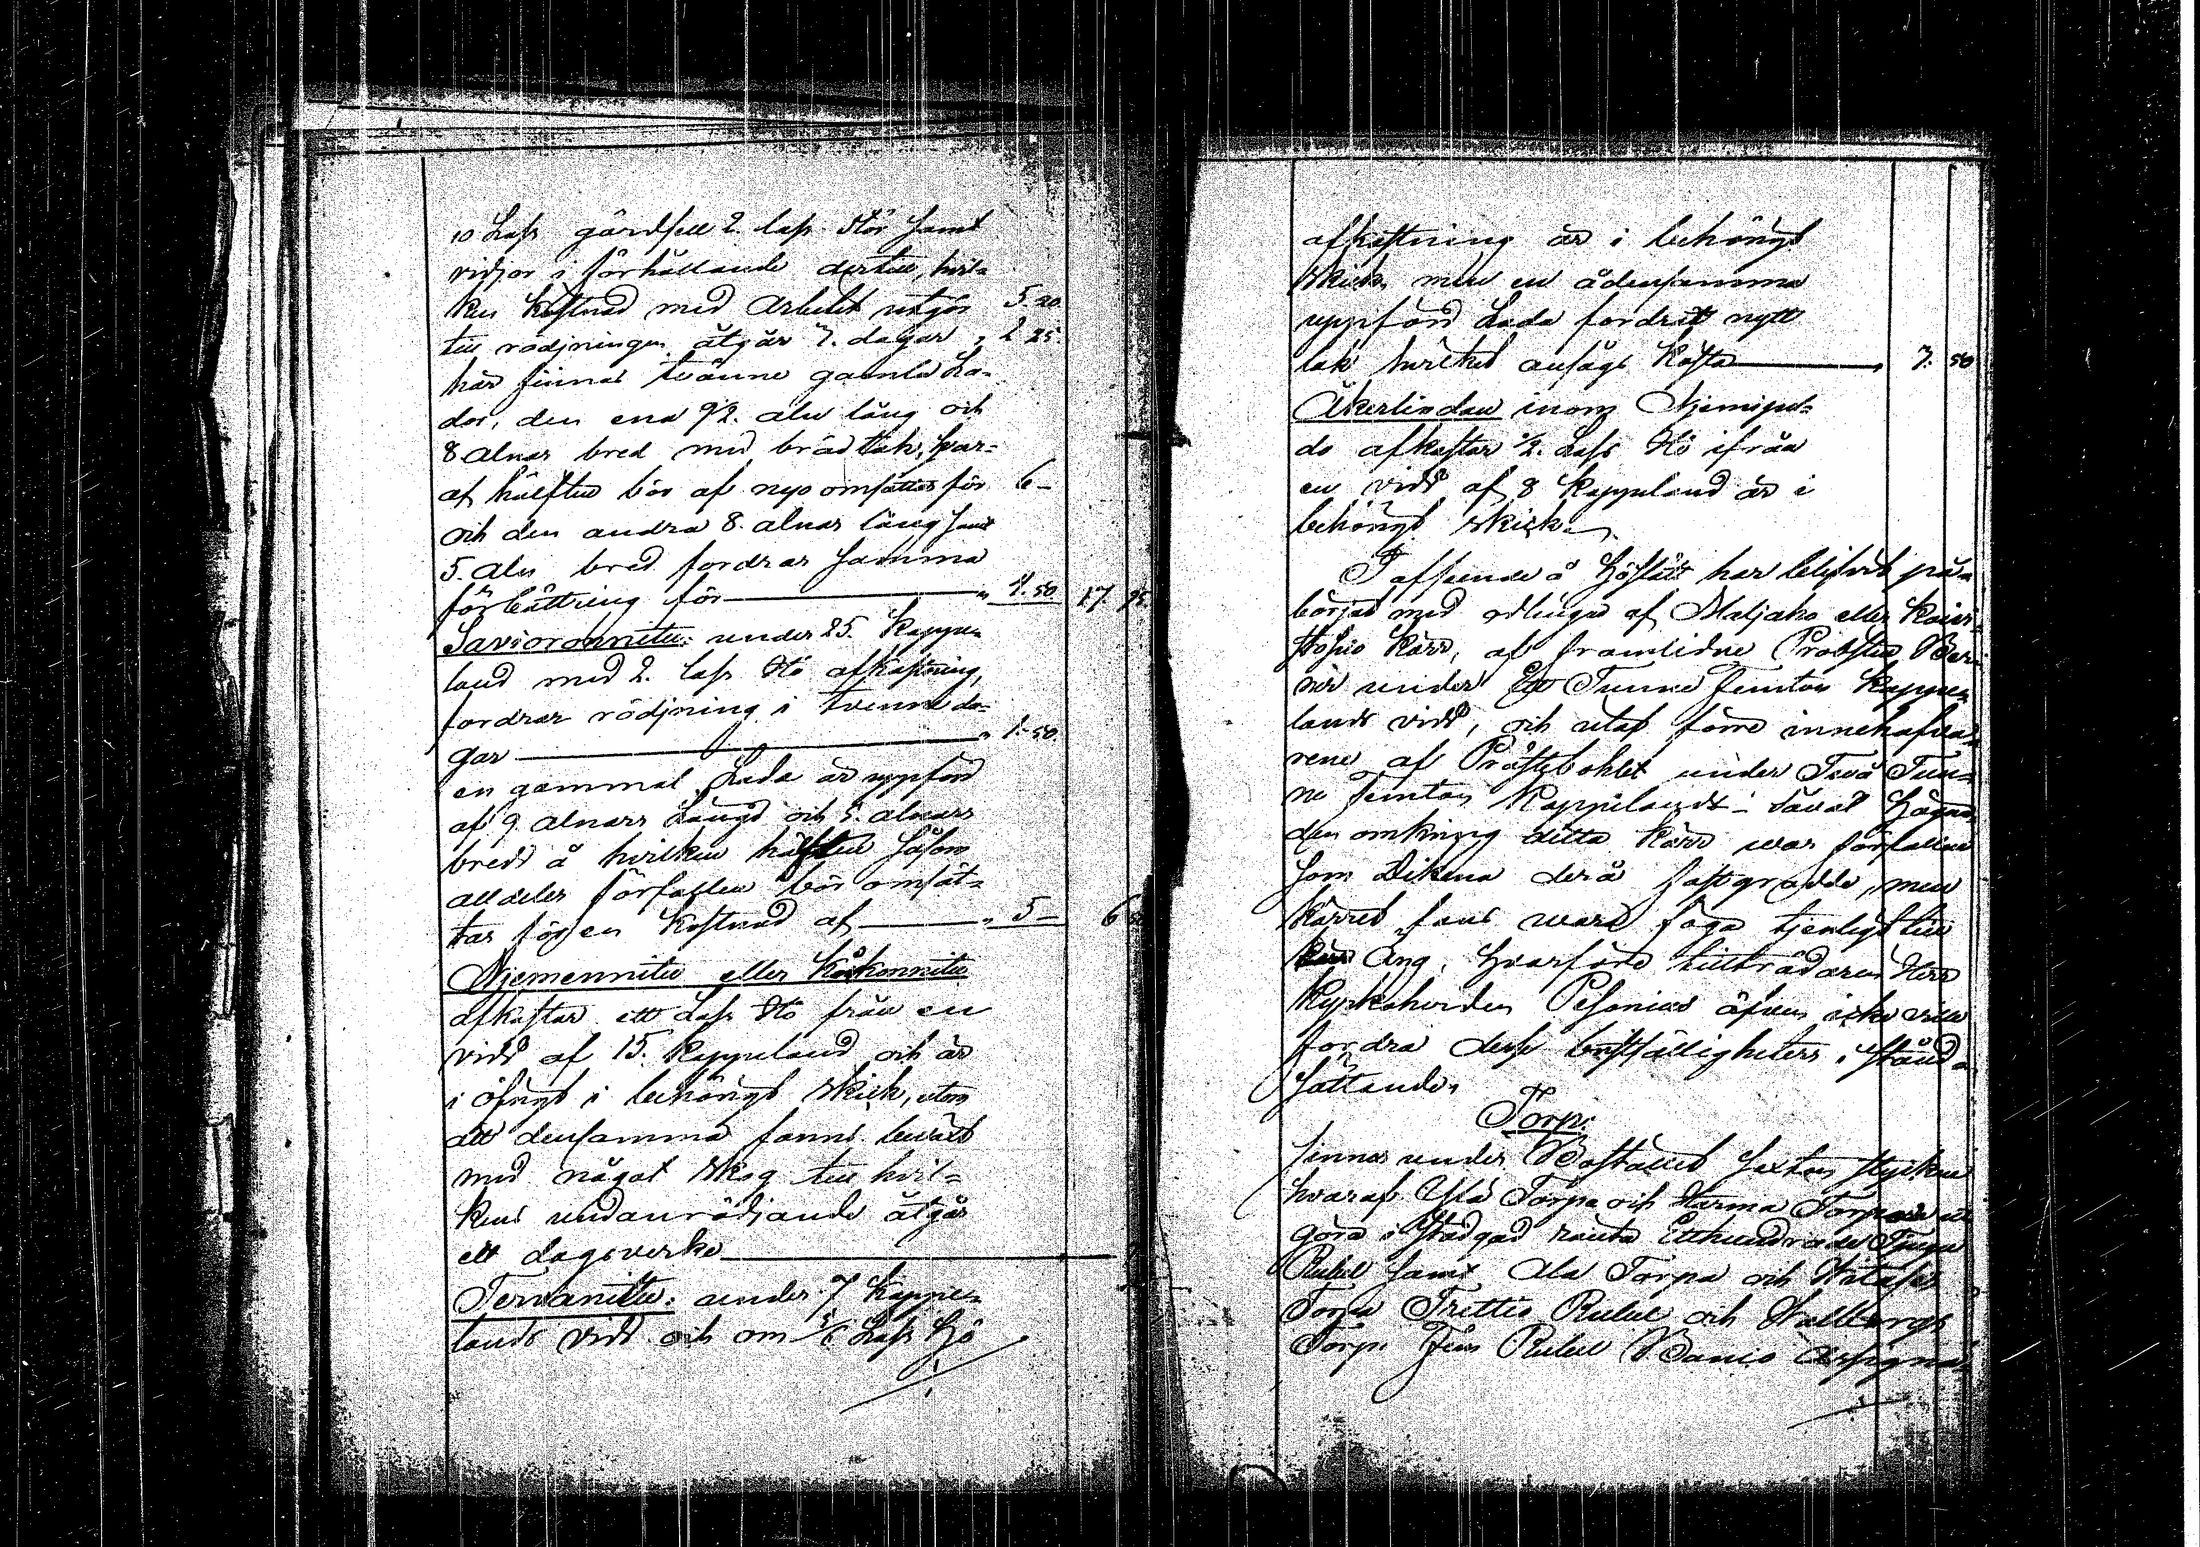 10 Lass gärdsell 2. lass Stör samt
vidjor i förhållande dertill, hvil-
ken kostnad med arbetet utgör 5.20
till rödjningen åtgår 3. dagar " 2 25.
här finnas tvänne gamla La-
dor, den ena 9½. aln lång och
8 alnar bred med brädtak, hvar-
af hälften bör af nyo omsättas för 6-
och den andra 8. alnar lång samt
5. aln bred fordrar samma
förbättring för " 4.50. 17 95
Savioronnitu: under 25. Kappe-
land med 2. lass Hö afkastning,
fordrar rödjning i tvenne da-
gar " 1.50.
en gammal Lada är uppförd
af 9 alnars Längd och 5. alnars
bredd å hvilken hälften såsom
alldeles förfallen bör omsät-
tas för en kostnad af " 5- 6 50
Njemennitu eller Koskonnitu
afkastar ett Lass Hö från en
vidd af 15. Kappeland och är
i öfrigt i behörigt skick, utom
att densamma fanns beväxt
med något skog till hvil-
kens undanrödjande åtgår
ett dagsverke
Tervanittu: under 7 Kappe-
lands vidd och om Lass Hö
afkastning är i behörigt
skick, men en å densamma
uppförd Lada fordrat nytt
tak hvilket ansågs kosta " 3. 50
Åkerlindan inom Njemipel-
do afkastar ½. Lass Hö ifrån
en vidd af 8 Kappeland är i
behörigt skick.
I afseende å Höslätt har blifvit på-
börjad med odlingen af Maljako eller
Kärr, af framlidne Probsten
under Ett Tunne Femton Kappe-
lands vidd, och utaf förre innehafva-
rene af Prästebohlet under Två Tun-
ne Femton Kappelands - såväl Hägna-
den omkring detta Kärr var förfallen
som Dikena derå fastgrodde, men
Kärret fans vara föga tjenligt till
Äng, hvarföre tillträdaren Herr
Kyrkoherden Pesonius äfven icke ville
fordra dess bristfälligheters iständ-
sättande.
Torp.
finnas under Boställed Sexton stycken
hvaraf Ylä Torpa och Harma Torpa ut
göra i stadgad ränta Etthundrade Tjugu
Rubel samt Ala Torpa och
Torpa Trettio Rubel och Wallbergs
Torp. Fem Rubel Banco Assigna-